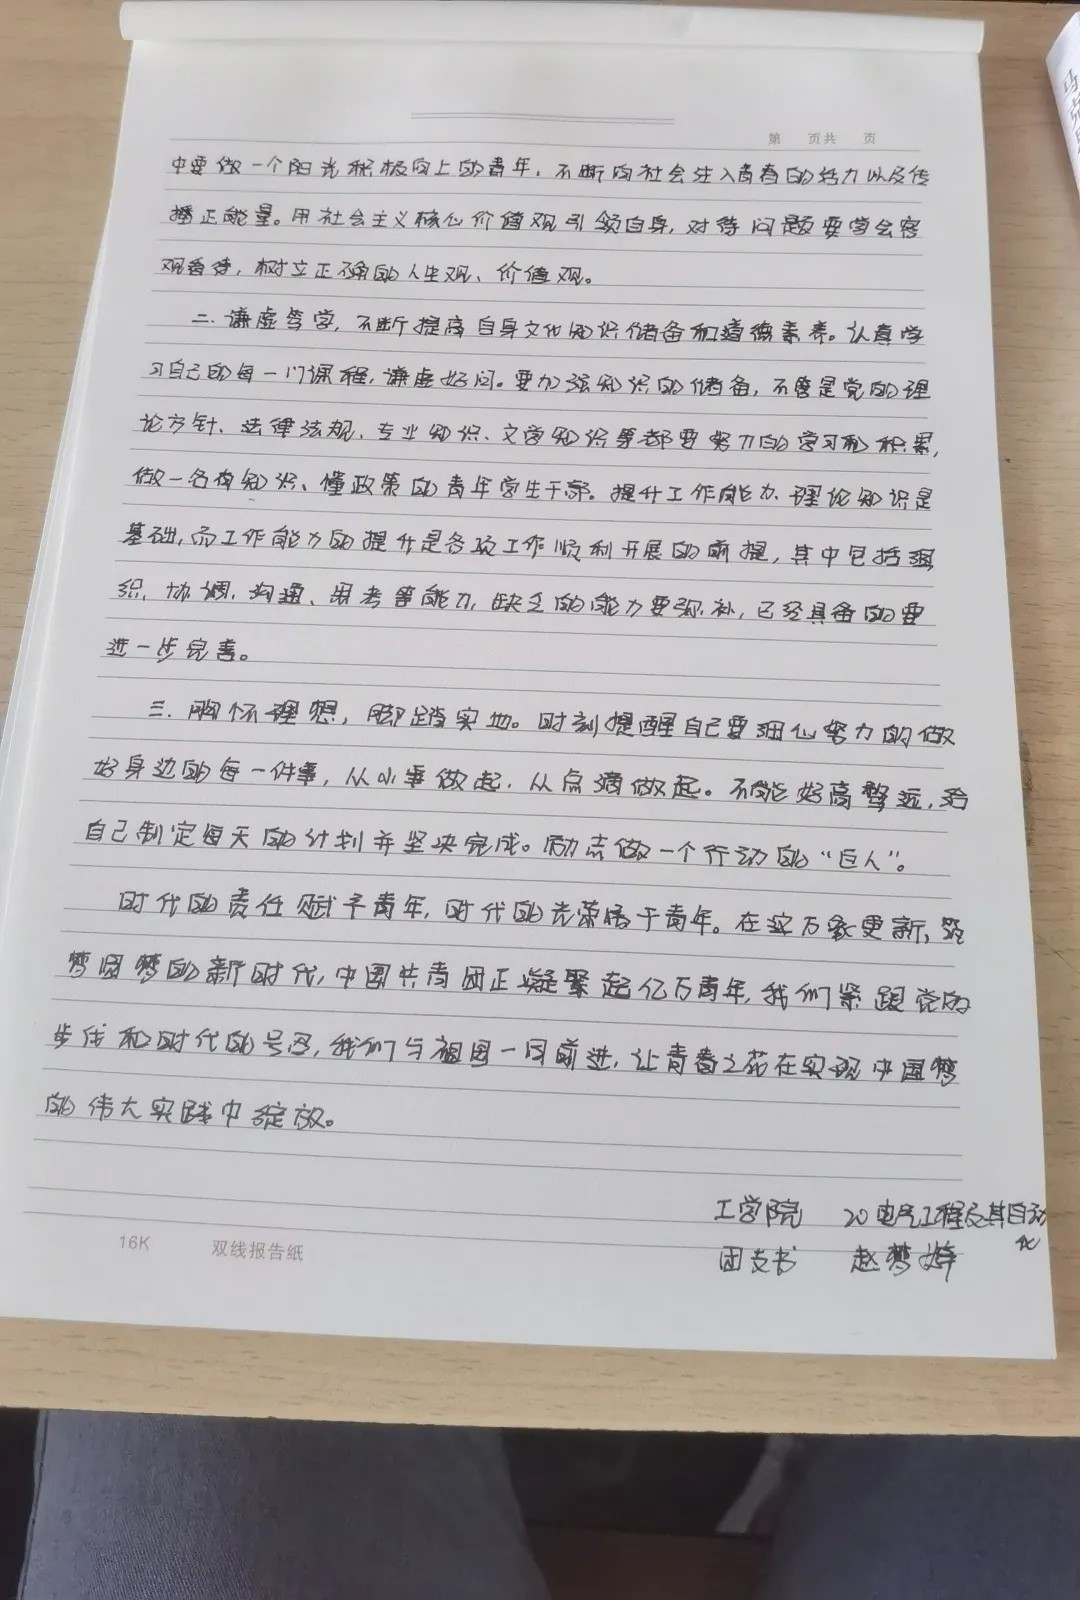 第 页共 页
中要做一个阳光积极向上的青年，不断向社会注入青春的活力以及传
播正能量。用社会主义核心价值观引领自身，对待问题要学会客
观看待，树立正确的人生观、价值观。
二.谦虚笃学，不断提高自身文化知识储备和道德素养。认真学
习自己的每一门课程，谦虚好问。要加强知识的储备，不管是党的理
论方针、法律法规、专业知识、文学知识等都要努力的学习和积累，
做一名有知识、懂政策的青年学生干部。提升工作能力.理论知识是
基础，而工作能力的提升是各项工作顺利开展的前提，其中包括组
织、协调、沟通、思考等能力，缺乏的能力要弥补，已经具备的要
进一步完善。
三.胸怀理想，脚踏实地。时刻提醒自己要细心努力的做
好身边的每一件事，从小事做起，从点滴做起。不能好高骛远，给
自己制定每天的计划并坚决完成。励志做一个行动的“巨人”。
时代的责任赋予青年，时代的光荣属于青年。在这万象更新，筑
梦圆梦的新时代，中国共青团正凝聚起亿万青年，我们紧跟党的
步伐和时代的号召，我们与祖国一同前进，让青春之花在实现中国梦
的伟大实践中绽放。
工学院 20电气工程及其自动
化
团支书 赵梦婷
16K 双线报告纸